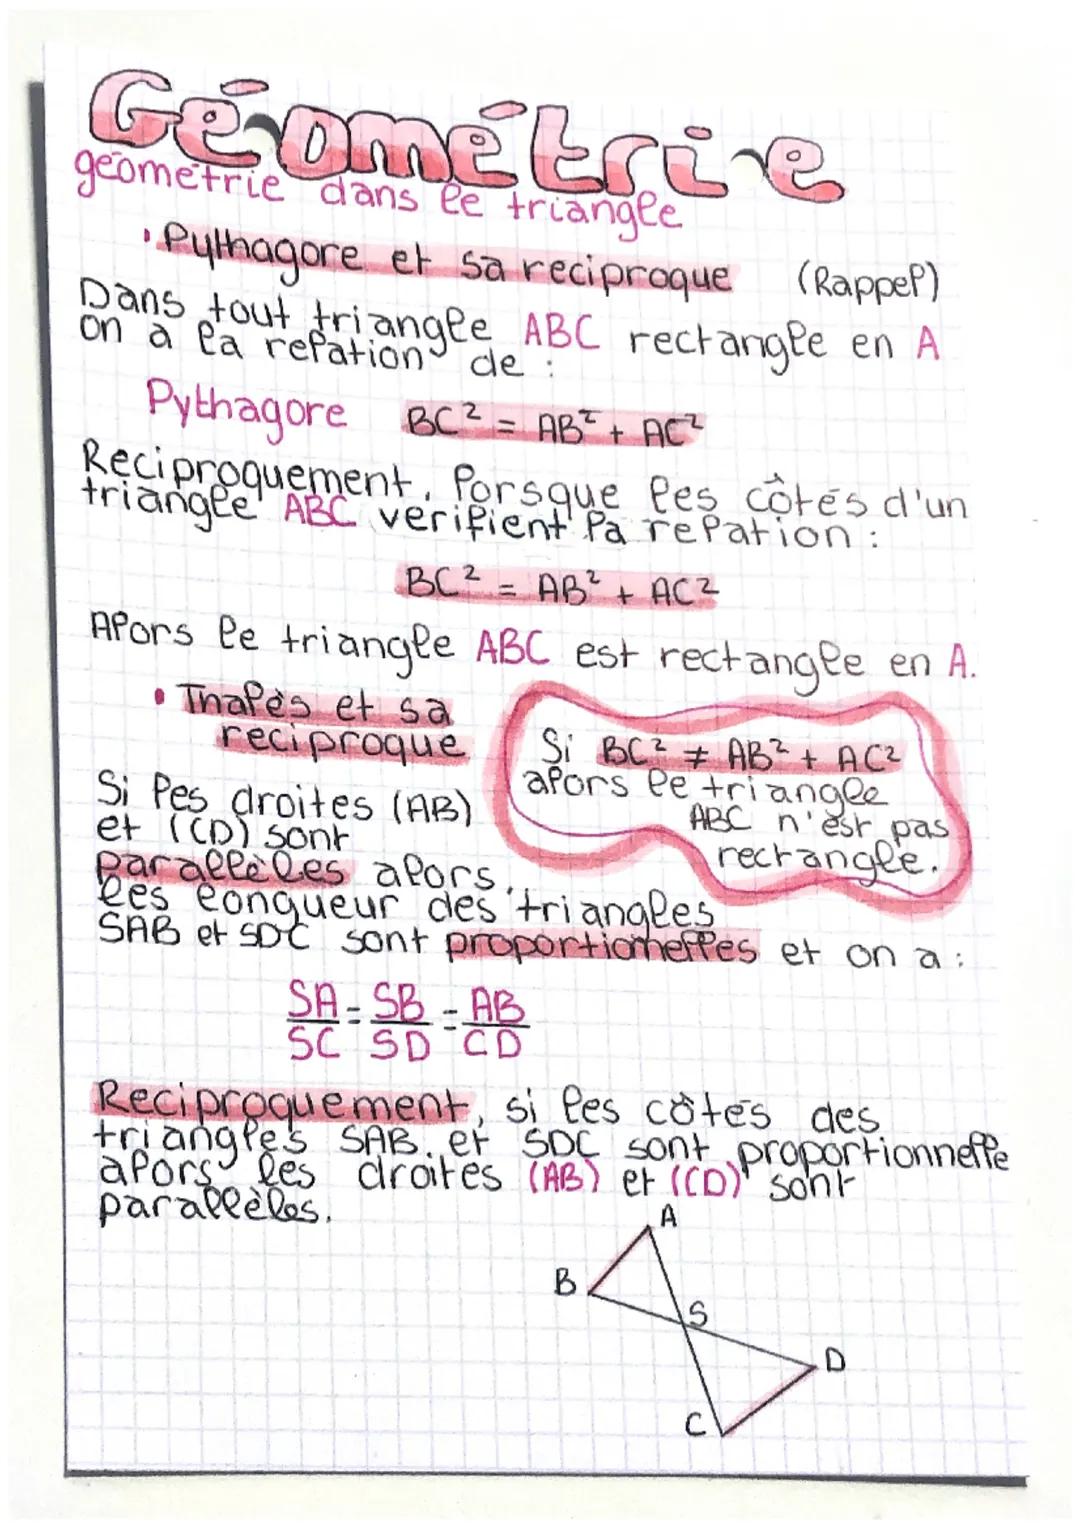 Géométrie
géométrie dans le triangle
• Pythagore et sa reciproque (Rappel)
Dans tout triangle ABC rectangle en A
on a la relation de :
Pythagore BC² = AB² + AC²
Reciproquement, lorsque les côtés d'un
triangle ABC verifient la relation :
BC² = AB² + AC²
Alors le triangle ABC est rectangle en A.
• Thalès et sa
reciproque
Si BC² ≠ AB² + AC²
alors le triangle
ABC n'est pas
rectangle.
Si les droites (AB)
et (CD) sont
parallèles alors,
les longueur des triangles
SAB et SDC sont proportionnelles et on a :
SA/SC = SB/SD = AB/CD
Reciproquement, si les côtés des
triangles SAB et SDC sont proportionnelle
alors les droites (AB) et (CD) sont
parallèles.
A
B
S
D
C